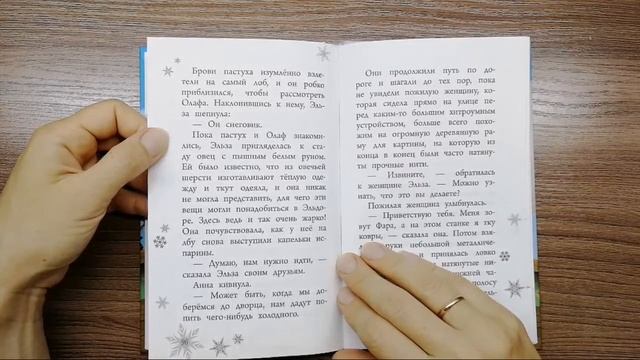 Брови пастуха изумлённо взле-
тели на самый лоб, и он робко
приблизился, чтобы рассмотреть
Олафа. Наклонившись к нему, Эль-
за шепнула:
— Он снеговик.
Пока пастух и Олаф знакоми-
лись, Эльза пригляделась к ста-
ду овец с пышным белым руном.
Ей было известно, что из овечьей
шерсти изготавливают тёплую оде-
жду и ткут одеяла, и она никак
не могла представить, для чего эти
вещи могли понадобиться в Эльдо-
ре. Здесь ведь и так очень жарко!
Она почувствовала, как у неё на
лбу снова выступили капельки ис-
парины.
— Думаю, нам нужно идти, —
сказала Эльза своим друзьям.
Анна кивнула.
— Может быть, когда мы до-
берёмся до дворца, нам дадут по-
пить чего-нибудь холодного.
Они продолжили путь по до-
роге и шагали до тех пор, пока
не увидели пожилую женщину, ко-
торая сидела прямо на улице пе-
ред каким-то большим хитроумным
устройством, больше всего похо-
жим на огромную деревянную ра-
му для картины, на которую из
конца в конец были часто натяну-
ты прочные нити.
— Извините, — обратилась
к женщине Эльза. — Можно уз-
нать, что это вы делаете?
Пожилая женщина улыбнулась.
— Приветствую тебя. Меня зо-
вут Фара, а на этом станке я тку
ковры, — сказала она. Потом взя-
руки небольшой металличе-
и принялась ловко
натянутые ни-
жней ча-
полосу